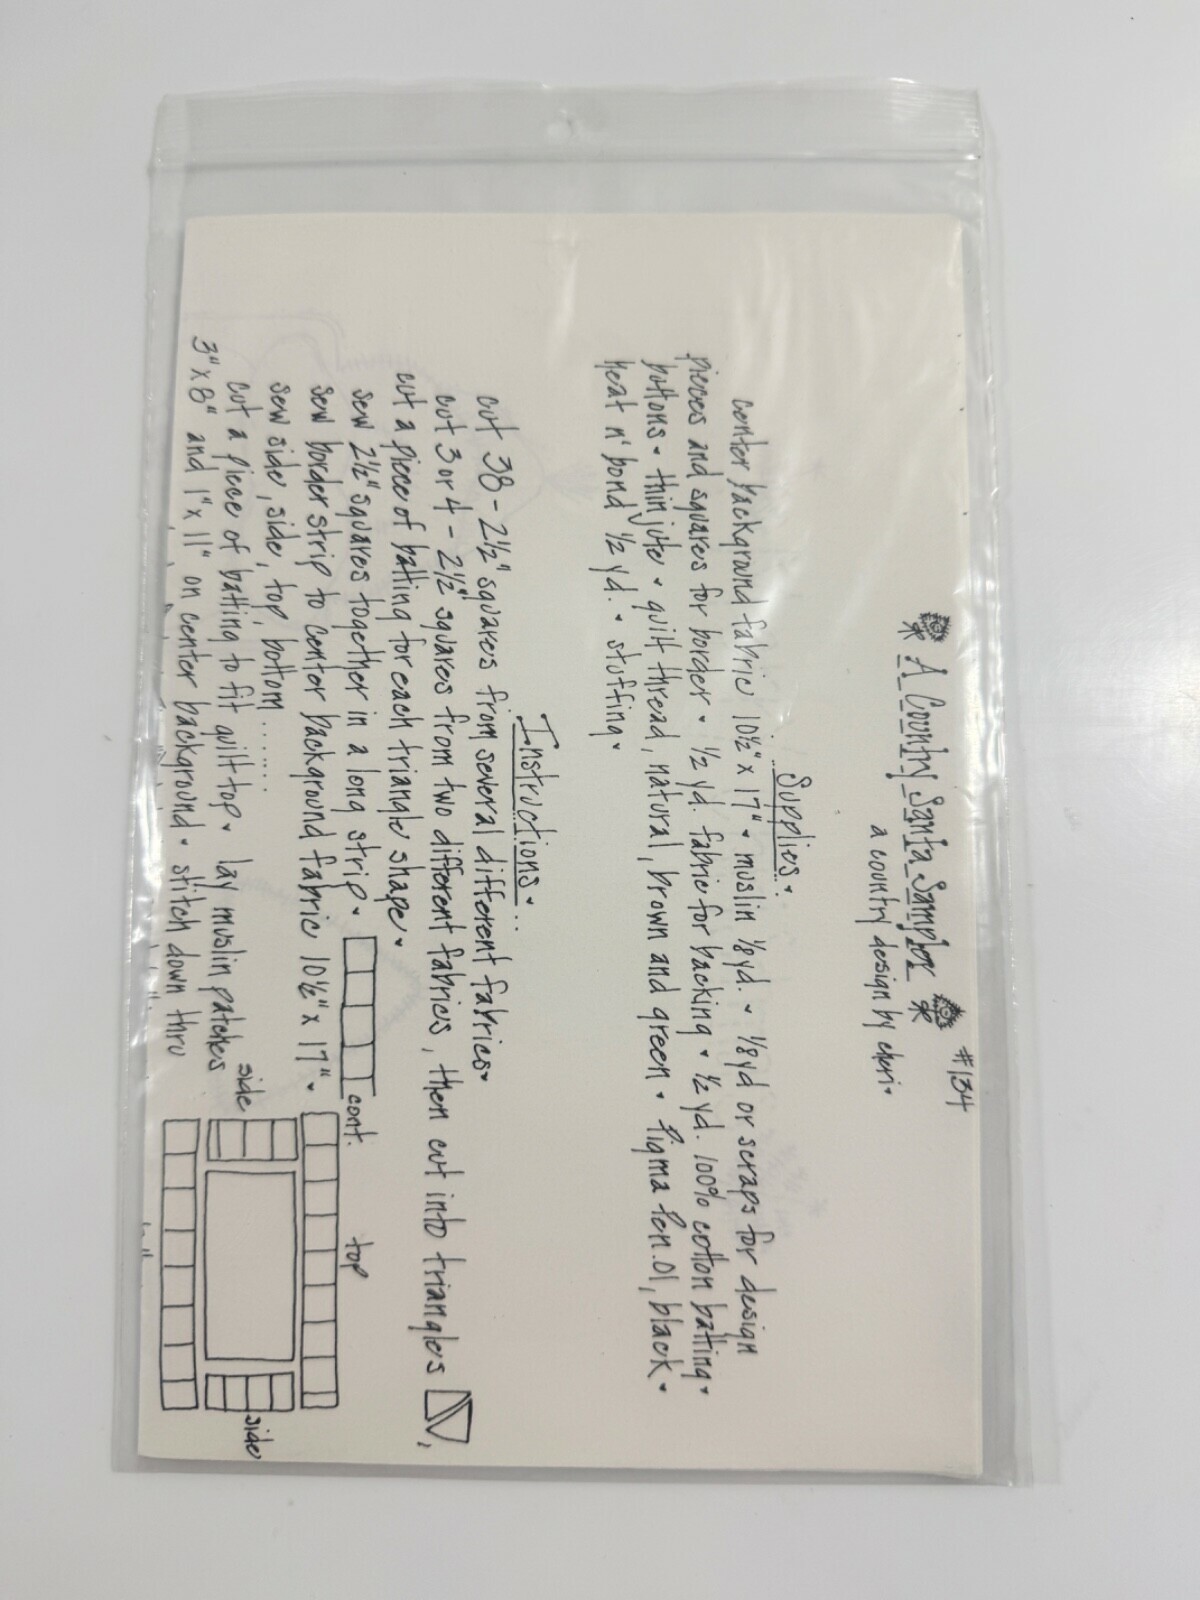 #134
A Country Santa Sampler
a country design by cheri.
Supplies.
center background fabric 10½" x 17" . muslin ⅛ yd. . ⅛ yd or scraps for design
pieces and squares for border . ½ yd. fabric for backing . ½ yd. 100% cotton batting.
buttons . thin jute . quilt thread, natural, brown and green . Pigma Pen .01, black .
heat n' bond ½ yd. . stuffing .
Instructions.
cut 38 - 2½" squares from several different fabrics.
cut 3 or 4 - 2½" squares from two different fabrics, then cut into triangles ,
cut a piece of batting for each triangle shape .
sew 2½" squares together in a long strip . cont.
sew border strip to center background fabric 10½" x 17" .
sew side, side, top, bottom ......
cut a piece of batting to fit quilt top . lay muslin patches
3" x 8" and 1" x 11" on center background . stitch down thru
top
side
side